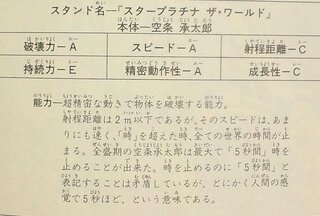 スタンド名―『スタープラチナ ザ・ワールド』
本体―空条 承太郎
破壊力―A
スピード―A
射程距離―C
持続力―E
精密動作性―A
成長性―C
能力―超精密な動きで物体を破壊する能力。
射程距離は2m以下であるが、そのスピードは、あま
りにも速く、「時」を超えた時、全ての世界の時間が止
まる。全盛期の空条承太郎は最大で「5秒間」時を
止めることが出来た。時を止めるのに「5秒間」と
表記することは矛盾しているが、とにかく人間の感
覚で5秒ほど、という意味である。